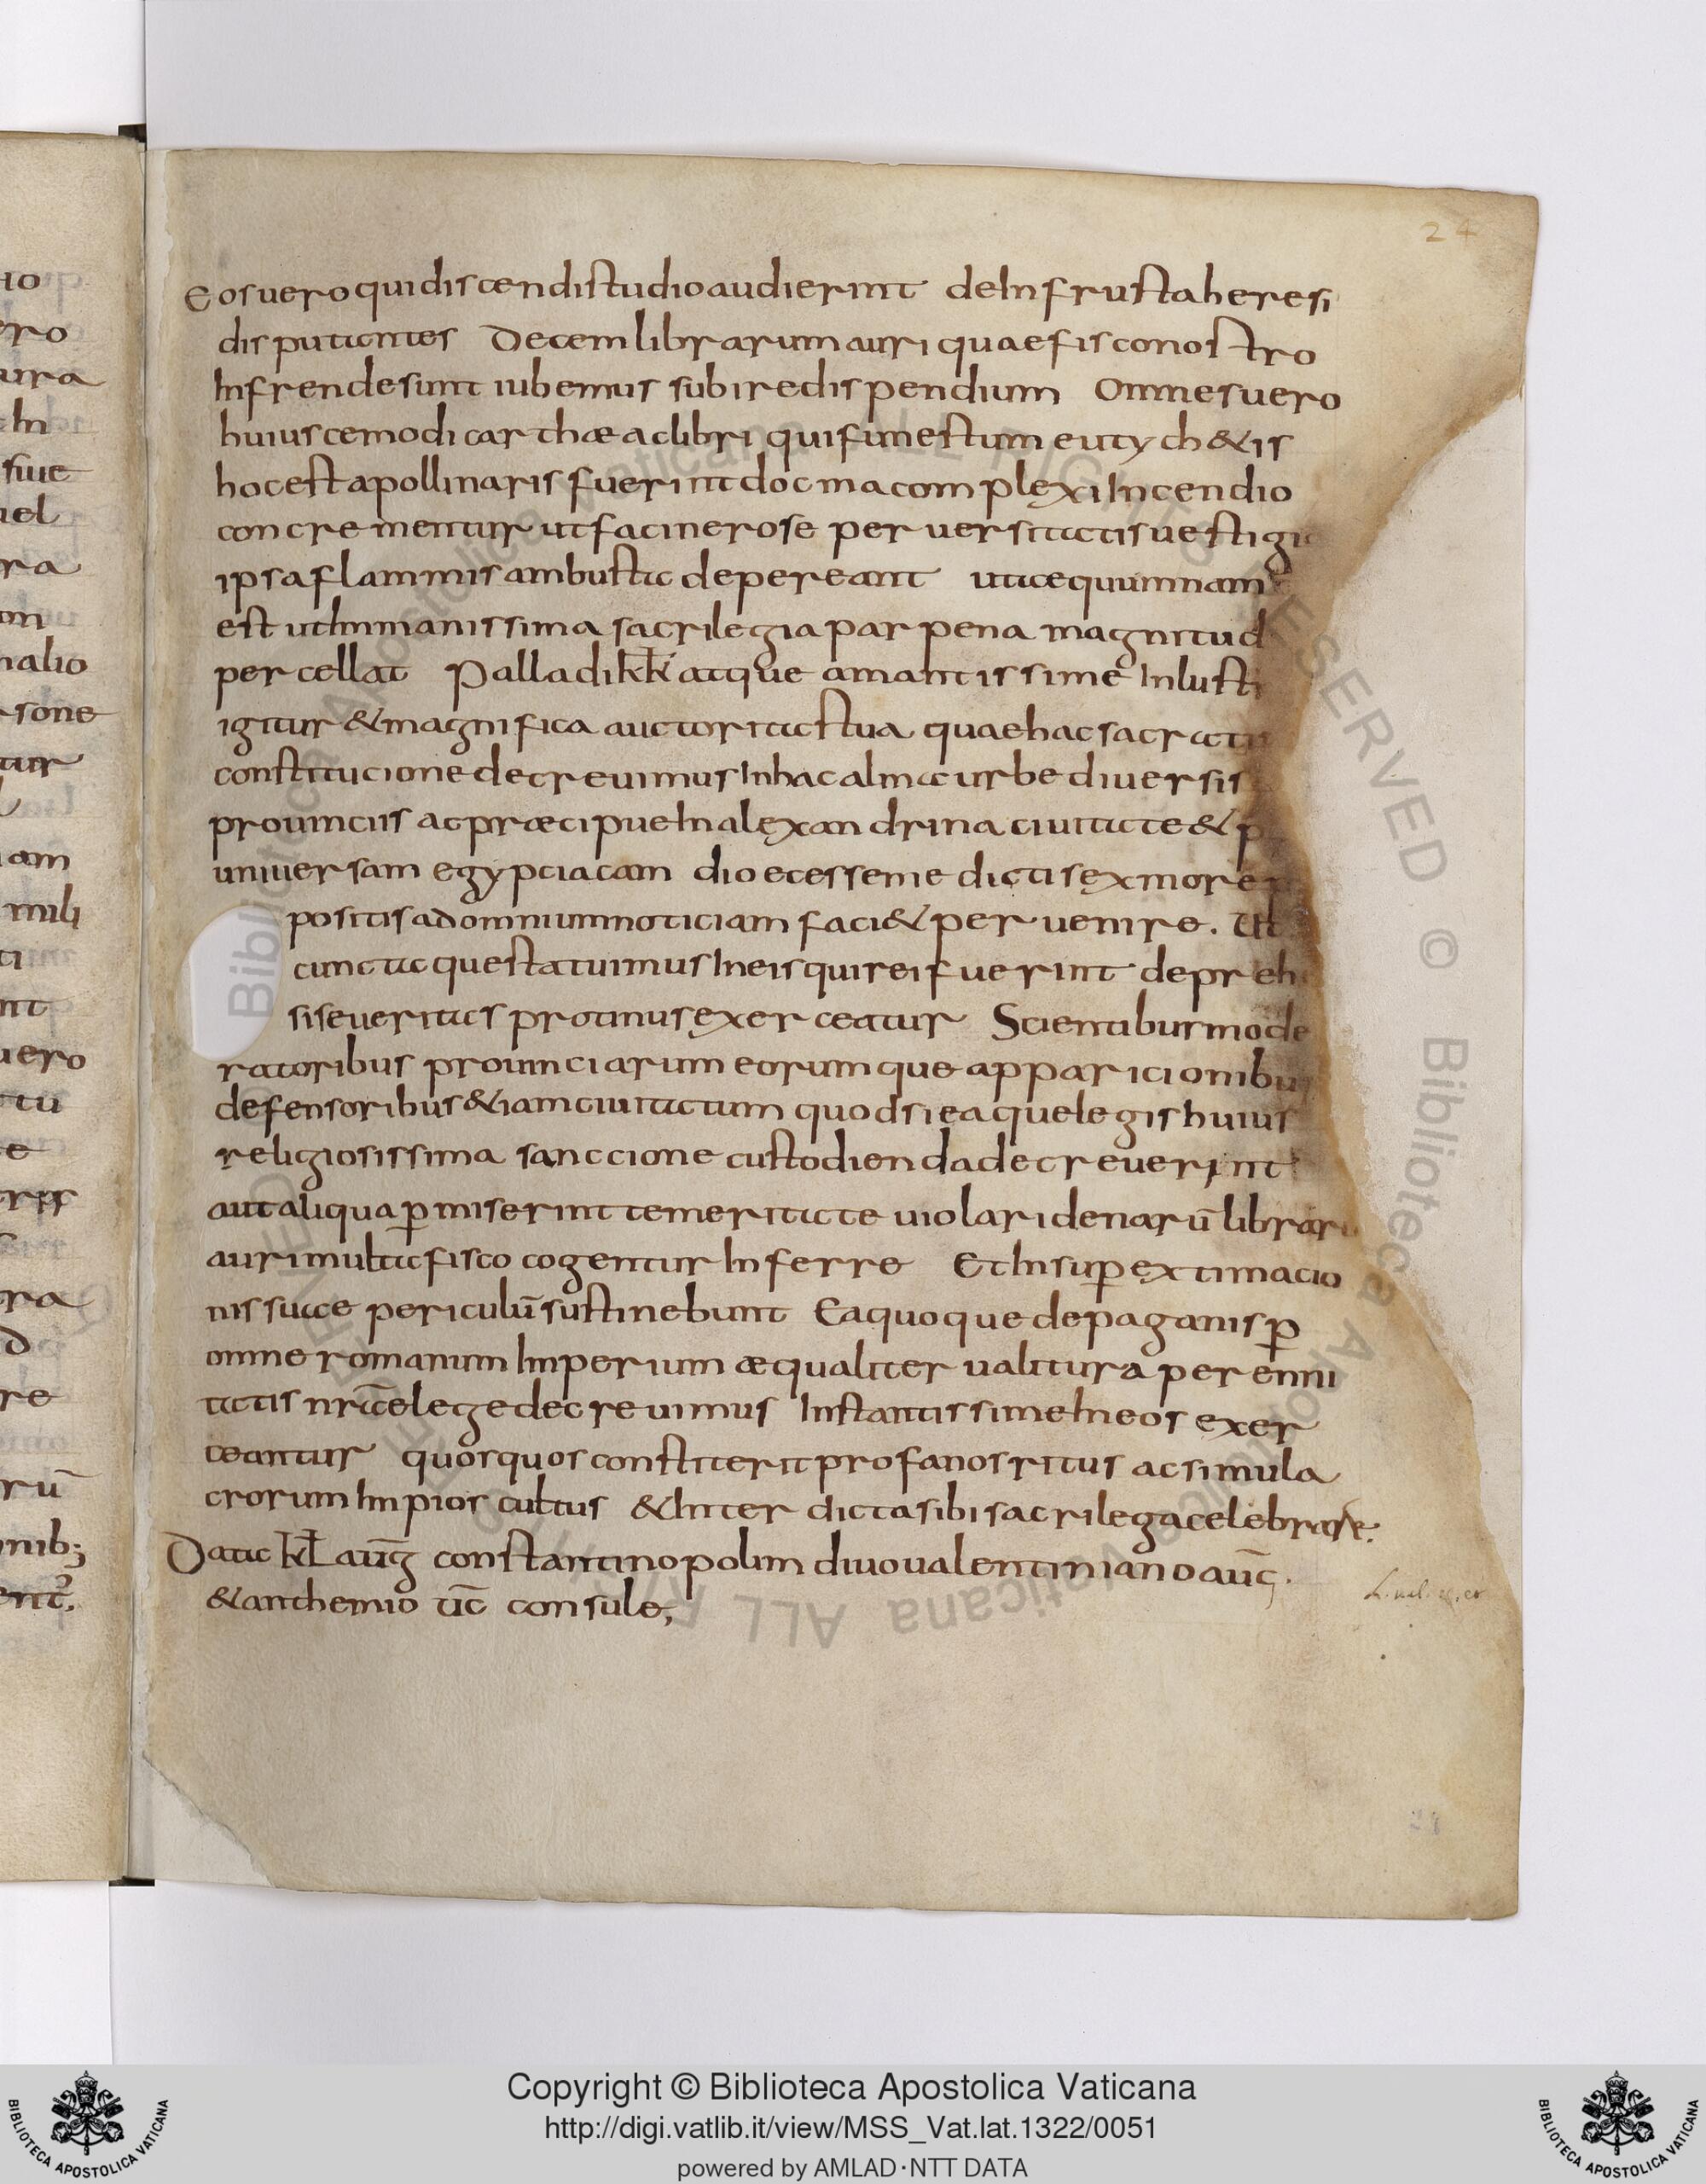 24
Eos vero qui discendi studio audierint de Infrusta heresi
disputantes Decem librarum auri quae fisco nostro
Infrende sunt iubemus subire dispendium Omnes uero
huiuscemodi carthæ ac libri qui funestum eutych&is
hoc est apollinaris fuerint docma complexi Incendio
concrementur ut facinerose peruersitatis uestigi
ipsa flammis ambusta depereant uti æquum nam
est ut Inmanissima sacrilegia par pena magnitud
percellat Palladi kk atque amantissime Inlust
igitur & magnifica auctoritas tua quae hac sacrat
constitucione decreuimus In hac alma urbe diuersis
prouinciis ac præcipue In alexandrina ciuitate & p
uniuersam egypciacam dioecesseme dictis ex more
positis ad omnium noticiam faci& peruenire. Ut
cuncta que statuimus In eis qui rei fuerint depreh
si seueritas protinus exerceatur Scientibus mode
ratoribus prouinciarum eorumque apparicionibus
defensoribus &iam ciuitatum quod si ea que legis huius
religiosissima sanccione custodienda decreuerint
aut aliqua p̄miserint temeritate uiolari denarū librar
auri multa fisco cogentur Inferre Et Insup̄ extimacio
nis suæ periculū sustinebunt Ea quoque de paganis p̄
omne romanum Imperium æqualiter ualitura perenni
tatis nr̄æ lege decreuimus Instantissime In eos exer
ceantur quosquos constiterit profanos ritus ac simula
crorum Impios cultus & Interdicta sibi sacrilega celebrare.
Data kł aūg constantinopolim diuo ualentiniano aūg.
& anthemio ūc consule,
Copyright © Biblioteca Apostolica Vaticana
http://digi.vatlib.it/view/MSS_Vat.lat.1322/0051
powered by AMLAD·NTT DATA
BIBLIOTECA APOSTOLICA VATICANA
BIBLIOTECA APOSTOLICA VATICANA